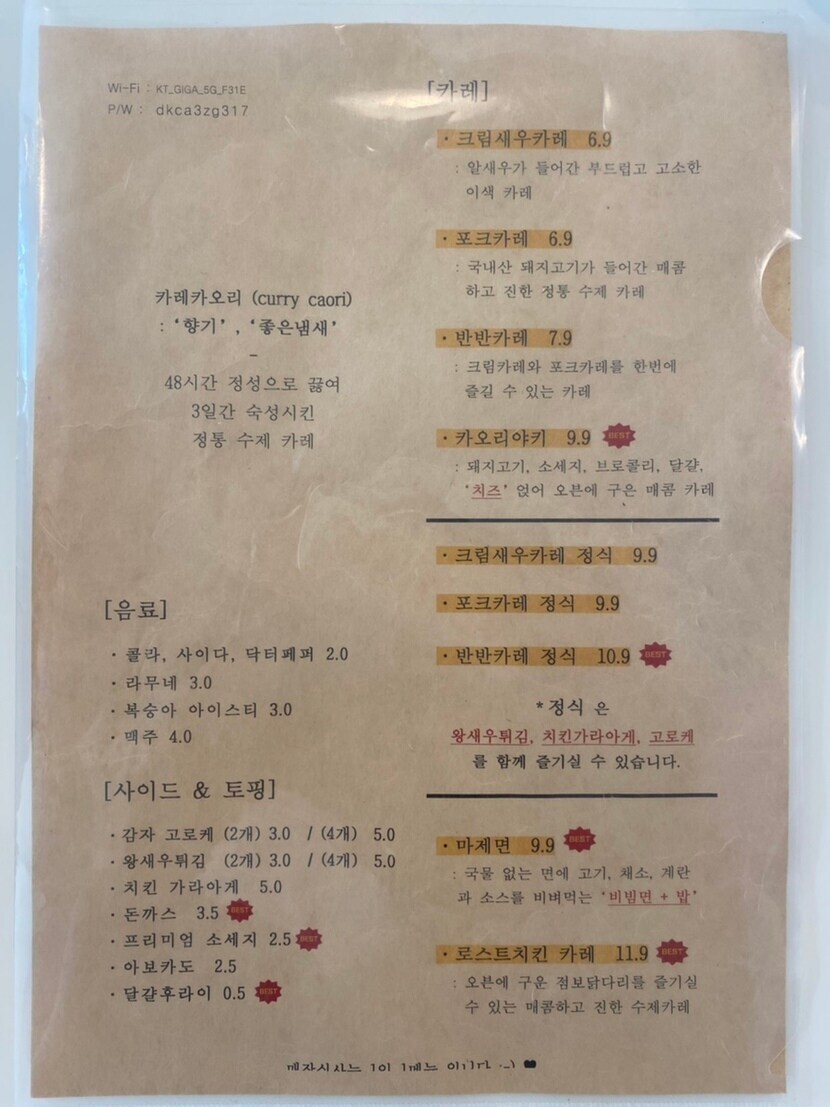 Wi-Fi : KT_GIGA_5G_F31E
P/W : dkca3zg317
카레카오리 (curry caori)
: '향기' , '좋은냄새'
–
48시간 정성으로 끓여
3일간 숙성시킨
정통 수제 카레
[음료]
· 콜라, 사이다, 닥터페퍼 2.0
· 라무네 3.0
· 복숭아 아이스티 3.0
· 맥주 4.0
[사이드 & 토핑]
· 감자 고로케 (2개) 3.0 / (4개) 5.0
· 왕새우튀김 (2개) 3.0 / (4개) 5.0
· 치킨 가라아게 5.0
· 돈까스 3.5 BEST
· 프리미엄 소세지 2.5 BEST
· 아보카도 2.5
· 달걀후라이 0.5 BEST
[카레]
· 크림새우카레 6.9
: 알새우가 들어간 부드럽고 고소한
이색 카레
· 포크카레 6.9
: 국내산 돼지고기가 들어간 매콤
하고 진한 정통 수제 카레
· 반반카레 7.9
: 크림카레와 포크카레를 한번에
즐길 수 있는 카레
· 카오리야키 9.9 BEST
: 돼지고기, 소세지, 브로콜리, 달걀,
'치즈' 얹어 오븐에 구은 매콤 카레
· 크림새우카레 정식 9.9
· 포크카레 정식 9.9
· 반반카레 정식 10.9 BEST
*정식 은
왕새우튀김, 치킨가라아게, 고로케
를 함께 즐기실 수 있습니다.
· 마제면 9.9 BEST
: 국물 없는 면에 고기, 채소, 계란
과 소스를 비벼먹는 '비빔면 + 밥'
· 로스트치킨 카레 11.9 BEST
: 오븐에 구운 점보닭다리를 즐기실
수 있는 매콤하고 진한 수제카레